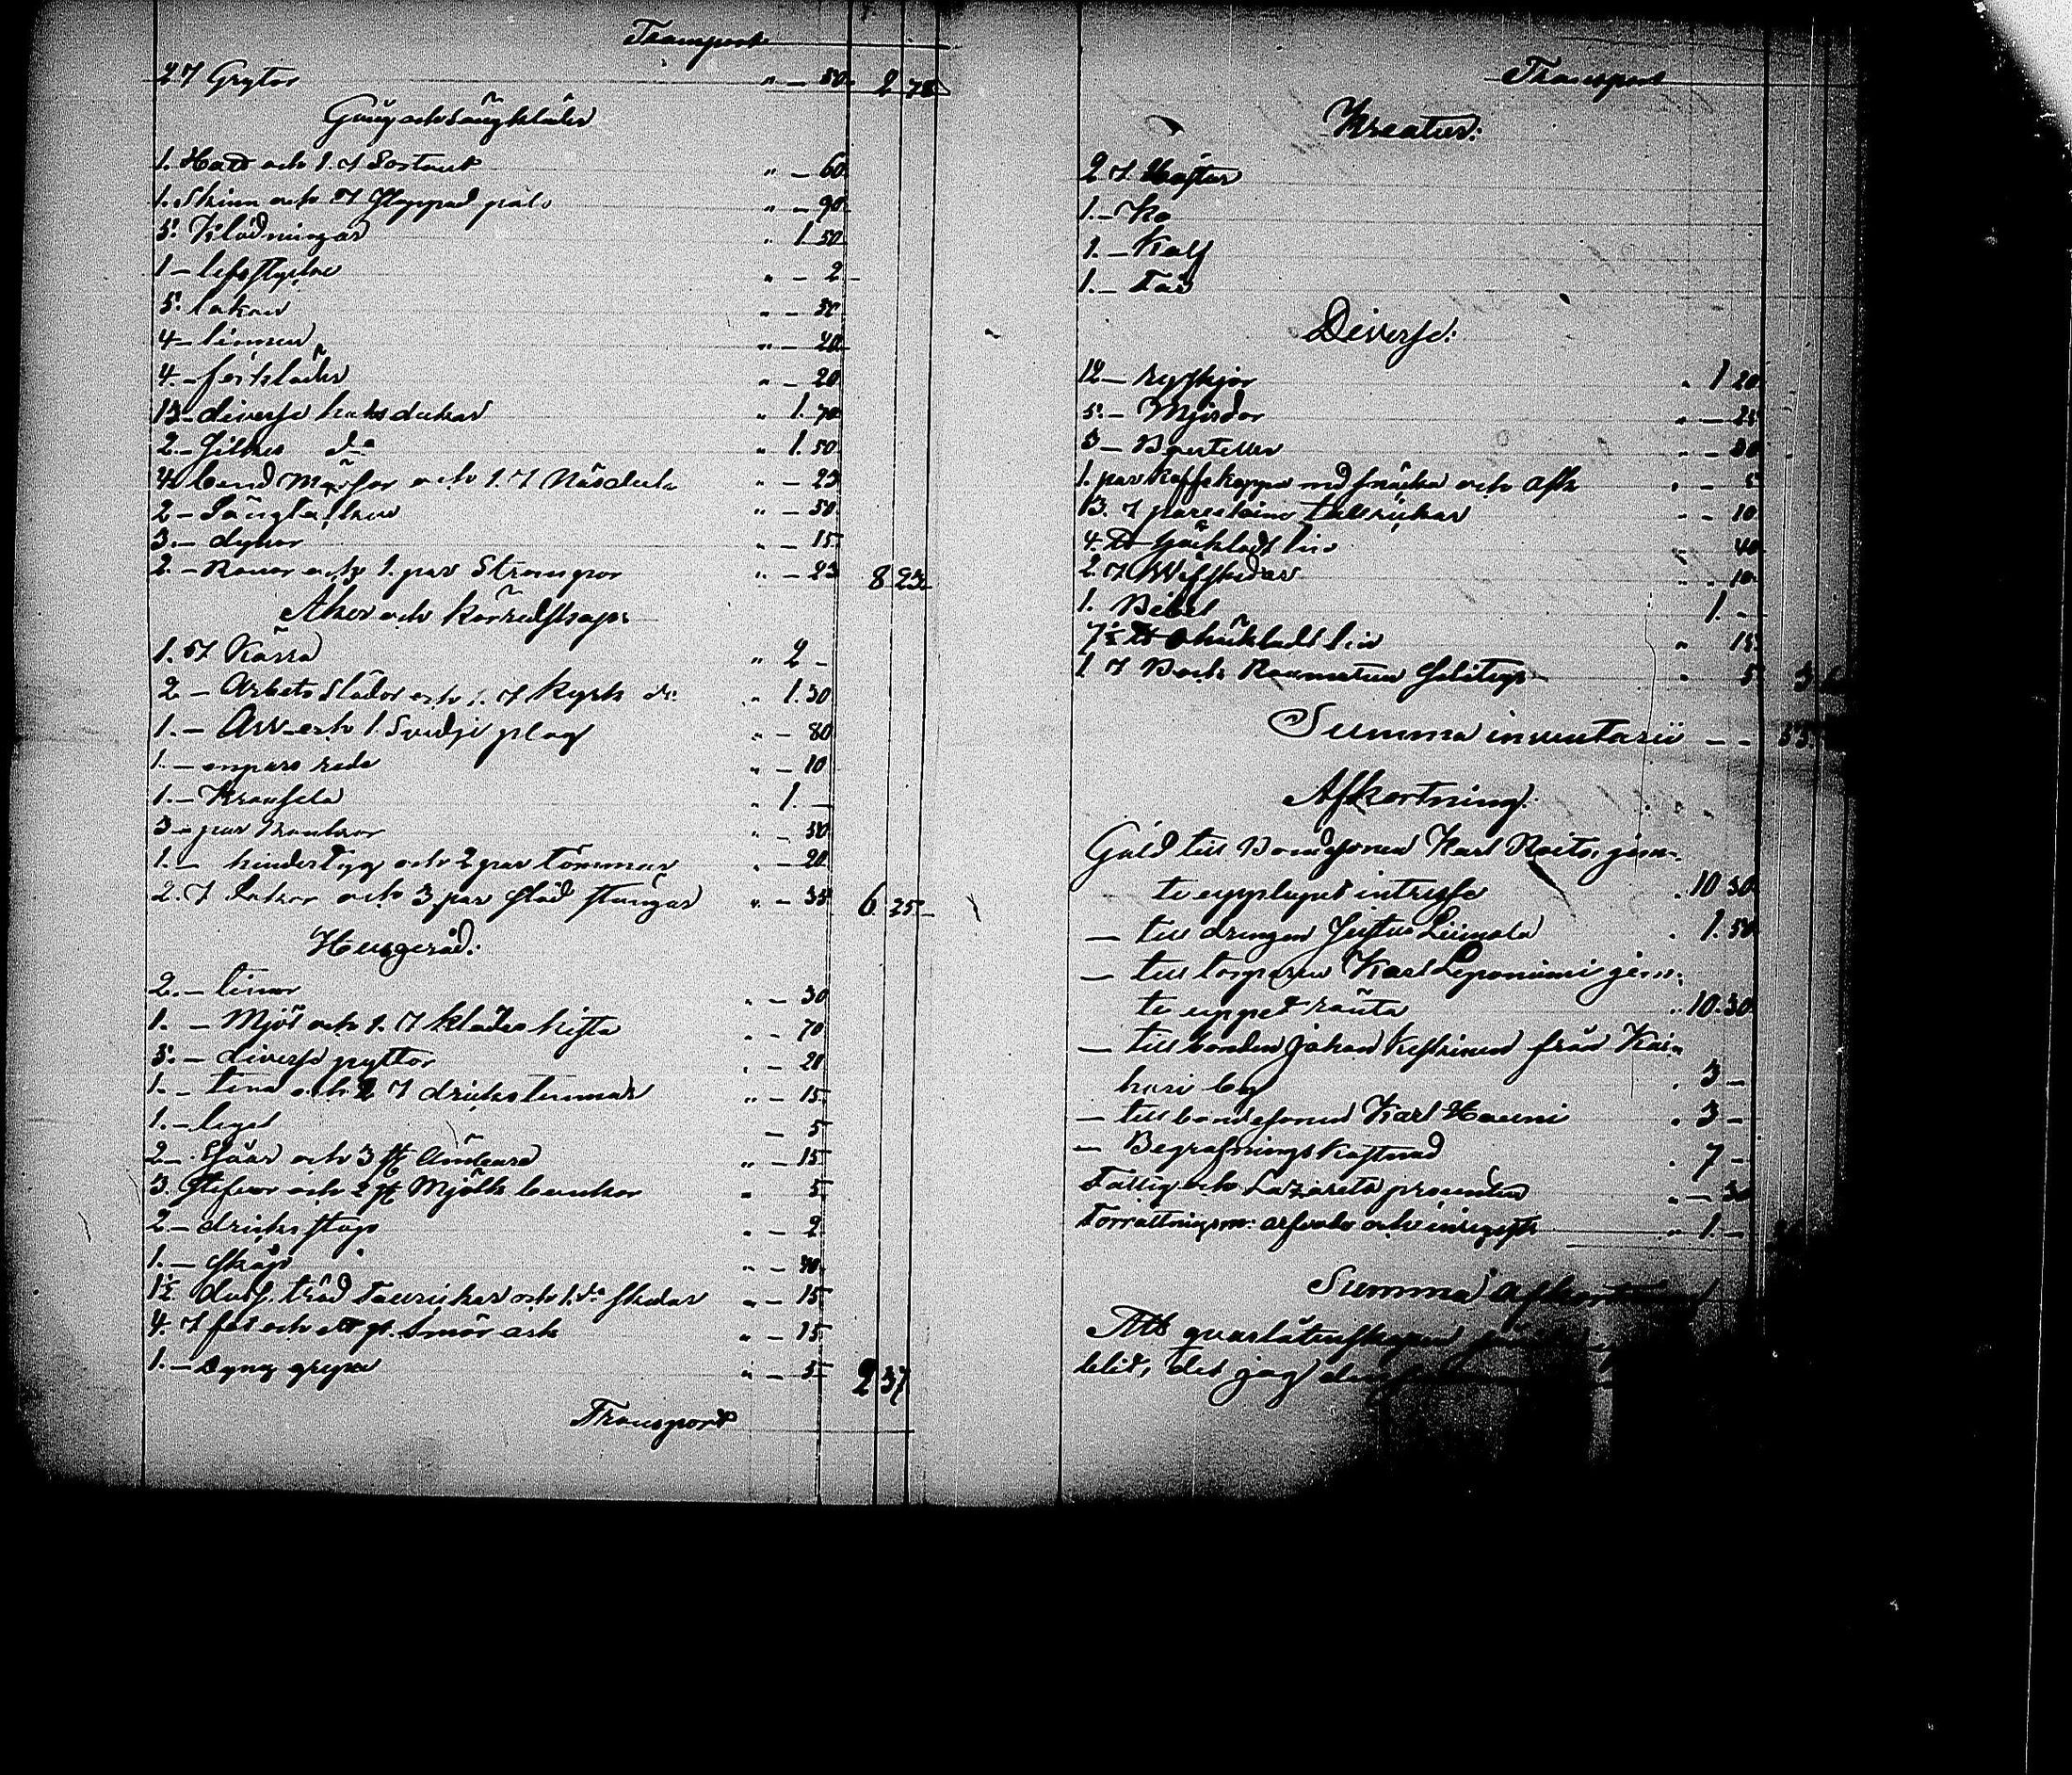 Transport
2 st Grytor " — 50 2 75
Gång och sängkläder
1. Hatt och 1. st Sortout " — 60
1. Skinn och st Kloppad päls " — 90
5. Klädningar " 1 50
1 — lifstycke " — 2
5. lakan " — 50
4 — linnen " — 20
4. — förkläder " — 20
13 — diverse halsdukar " 1. 70
2. — Silkes do " 1. 50
4 band Mössor och 1. st Näsduk " — 25
2 — Sänglakan " — 50
3. — dynor " — 15
2 — Ranor och 1. par Strumpor " — 25 8 25
Åker och körredskap:
1. st Kärra " 2 —
2 — Arbets Slädor och 1. st kyrk do " 1. 30
1. — Arv och 1. Svedje plog " — 80
1. — enpars reda " — 10
1. — Kransela " 1. —
3 — par Rankor " — 50
1. — hindertyg och 2 par tömmar " — 20
2. st Lakor och 3 par släd stängor " — 35 6 25
Husgeråd:
2. — tinor " — 30
1. — Mjöl och 1. st klädes kista " — 70
5. — diverse pyttor " — 20
1. — tina och 2 st dricks tunnor " — 15
1. — legel — 5
2 — Såar och 3 st Ämbare " — 15
3. Stefvor och 2 st Mjölk bunkor " 5
2 — dricks stop " — 2
1. — skåp " — 40
1½ duss. träd Tallrickar och 1. do skedar " — 15
4. st fat och ett gl. Smör ask " — 15
1. — Dyng grepe " — 5 2 37
Transport
Transport
Kreatur:
2 st Hästar
1. — Ko
1. — Kalf
1. — Får
Diverse:
12 — ryskjor " 1 20
5. — Mjerdor " — 25
3 — Bouteller " — 30
1. par Kaffekoppar med snäcka och ask " — 5
13. st porcelains tallrickar " — 10
4. ℔ Häckladt lin " 40
2 st Wäfskedar " " 10
1. Bibel 1. —
7½ ℔ ohäckladt lin " 15
1 st Bock 5 3
Summa inventarii — — 55
Afkortning:
Gäld till Bondesonen Karl Raito, jem-
te upplupet intresse " 10 30
— till drengen Justus Liimola " 1. 50
— till torparen Karl Leponiemi jem-
te uppet ränta " 10. 30
— till bonden Johan Keskinen från Kai-
hari by " 3 —
— till bondesonen Karl Hauni " 3 —
— Begrafnings Kostnad " 7 —
Fattig och Lazarets procenten " — 30
Förrättningsm: arfvode och inregistr " 1. —
Summa Afkortning
Att qvarlåtenskapen
blit, det jag